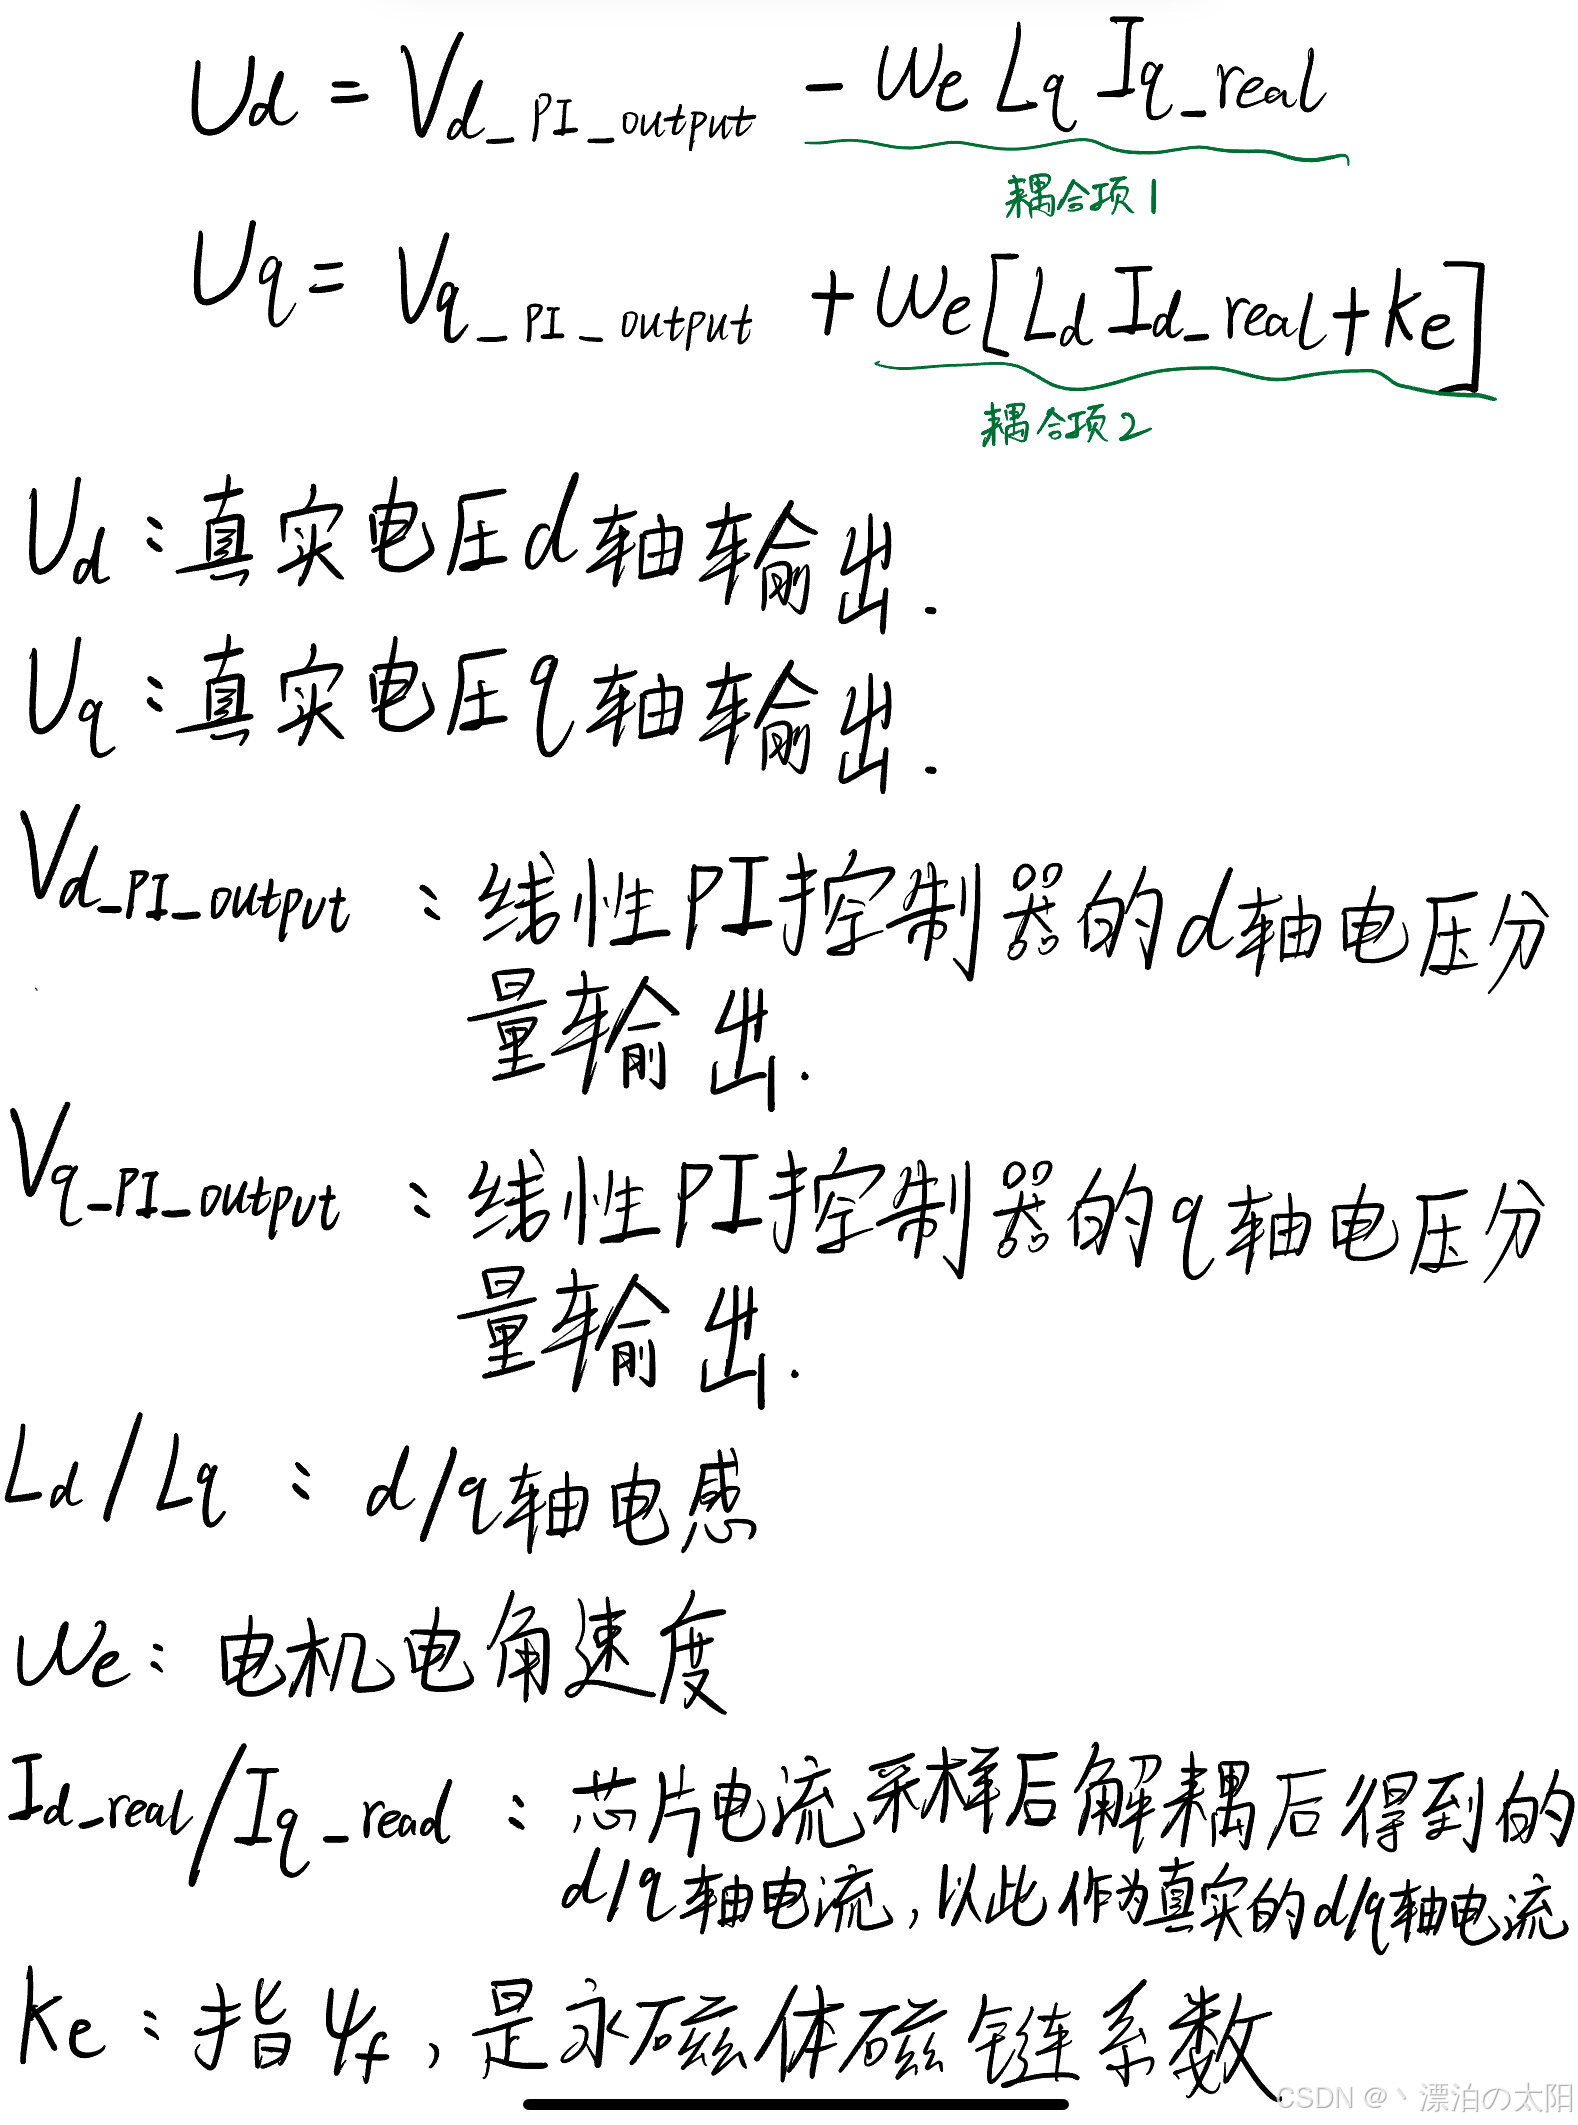 Ud = Vd_PI_output - We Lq Iq_real
耦合项1
Uq = Vq_PI_output + We[Ld Id_real + Ke]
耦合项2
Ud : 真实电压d轴输出.
Uq : 真实电压q轴输出.
Vd_PI_output : 线性PI控制器的d轴电压分
量输出.
Vq_PI_output : 线性PI控制器的q轴电压分
量输出.
Ld/Lq : d/q轴电感
We : 电机电角速度
Id_real/Iq_read : 芯片电流采样后解耦后得到的
d/q轴电流,以此作为真实的d/q轴电流
Ke : 指ψf, 是永磁体磁链系数
CSDN @丶漂泊の太阳